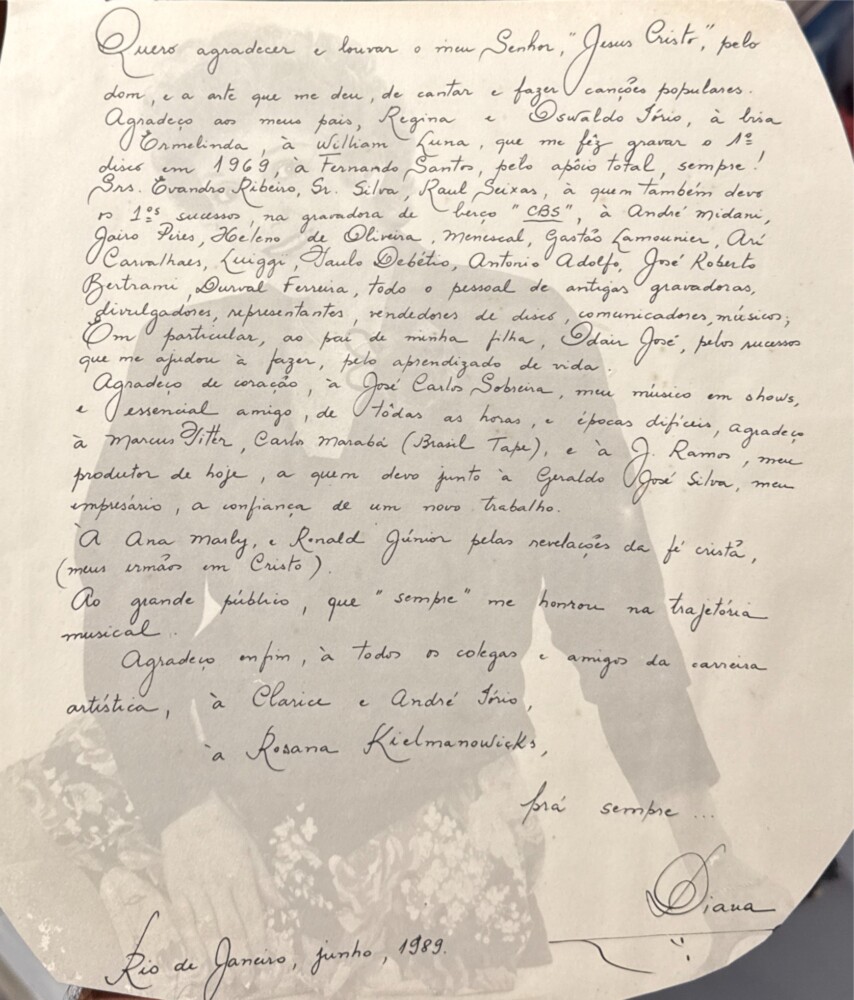 Quero agradecer e louvar o meu Senhor, "Jesus Cristo", pelo
dom, e a arte que me deu, de cantar e fazer canções populares.
Agradeço aos meus pais, Regina e Oswaldo Iório, à bisa
Ermelinda, à William Luna, que me fêz gravar o 1º
disco em 1969, à Fernando Santos, pelo apôio total, sempre!
Srs. Evandro Ribeiro, Sr. Silva, Raul Seixas, à quem também devo
os 1ºs sucessos, na gravadora de berço "CBS", à André Midani,
Jairo Pires, Heleno de Oliveira, Menescal, Gastão Lamounier, Ari
Carvalhaes, Luiggi, Paulo Debétio, Antonio Adolfo, José Roberto
Bertrami, Durval Ferreira, todo o pessoal de antigas gravadoras,
divulgadores, representantes, vendedores de disco, comunicadores, músicos;
Em particular, ao pai de minha filha, Odair José, pelos sucessos
que me ajudou à fazer, pelo aprendizado de vida.
Agradeço de coração, à José Carlos Sobreira, meu músico em shows,
e essencial amigo, de tôdas as horas, e épocas difíceis, agradeço
à Marcus Pitter, Carlos Marabá (Brasil Tape), e à J. Ramos, meu
produtor de hoje, a quem devo junto à Geraldo José Silva, meu
empresário, a confiança de um novo trabalho.
À Ana Masly, e Ronald Júnior pelas revelações da fé cristã,
(meus irmãos em Cristo).
Ao grande público, que "sempre" me honrou na trajetória
musical.
Agradeço enfim, à todos os colegas e amigos da carreira
artística, à Clarice e André Iório,
à Rosana Kielmanowicks,
prá sempre ...
Diana
Rio de Janeiro, junho, 1989.